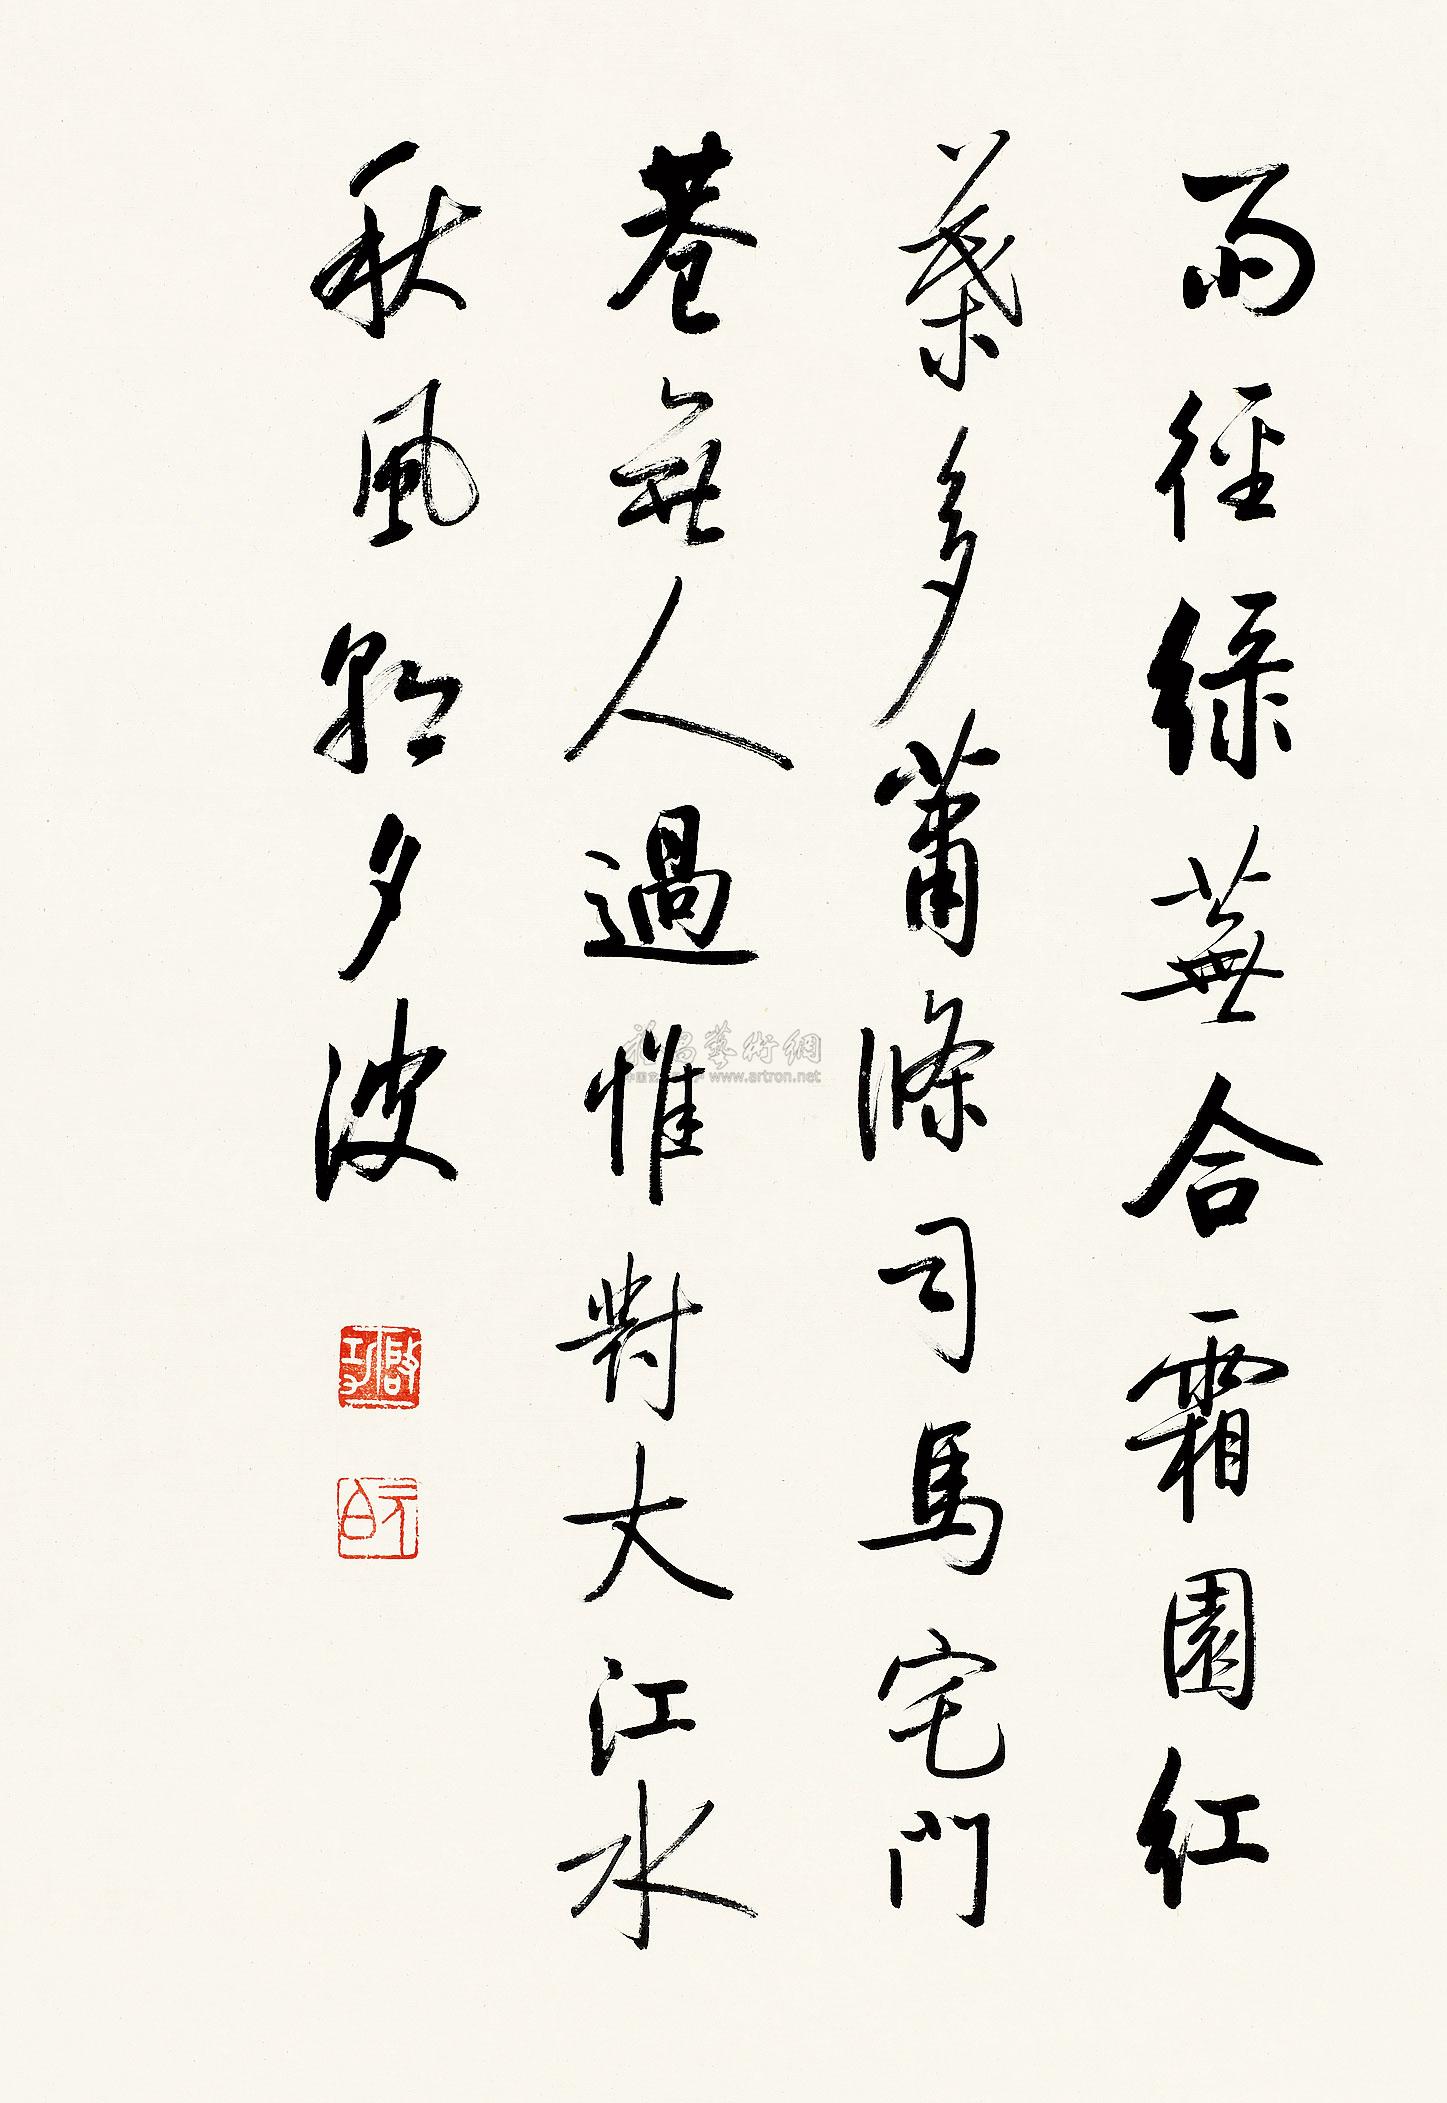 雨徑綠蕪合霜園紅
葉多蕭條司馬宅門
巷無人過惟對大江水
秋風朝夕波
啟功
元白
www.artron.net